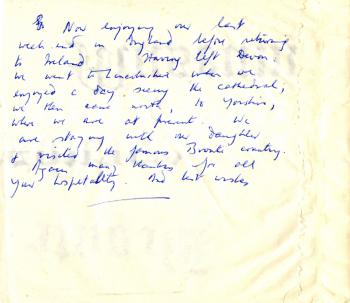 Now enjoying our last
week-end in England before returning
to Ireland. Having left Devon
we went to Winchester where we
enjoyed a day seeing the cathedral,
we then came north, to Yorkshire,
where we are at present. We
are staying with our daughter
& visited the famous Bronte country.
Again many thanks for all
your hospitality. And best wishes